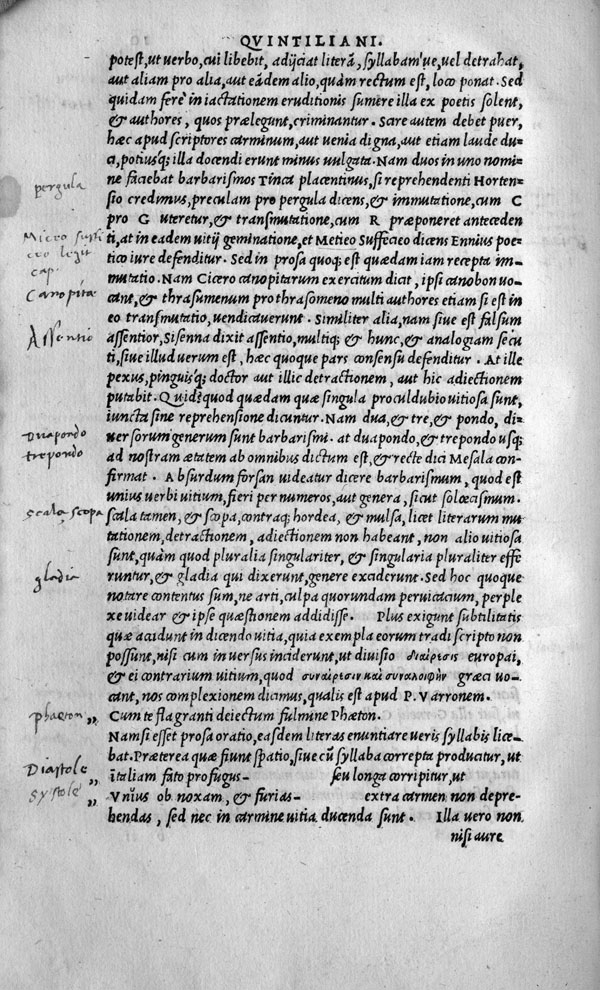 QVINTILIANI.
potest, ut uerbo, cui libebit, adijciat literã, syllabam'ue, uel detrahat,
aut aliam pro alia, aut eãdem alio, quàm rectum est, loco ponat. Sed
quidam ferè in iactationem eruditionis sumere illa ex poetis solent,
& authores, quos prælegunt, criminantur. Scire autem debet puer,
hæc apud scriptores carminum, aut uenia digna, aut etiam laude du-
ci, potiusq; illa docendi erunt minus uulgata. Nam duos in uno nomi-
ne faciebat barbarismos Tinca placentinus, si reprehendenti Horten-
sio credimus, preculam pro pergula dicens, & immutatione, cum C
pro G uteretur, & transmutatione, cum R præponeret anteceden-
ti, at in eadem uitij geminatione, et Metieo Suffecieo dicens Ennius poe-
tico iure defenditur. Sed in prosa quoq; est quædam iam recepta im-
mutatio. Nam Cicero canopitarum exercitum dicit, ipsi canobon uo-
cant, & thrasumenum pro thrasomeno multi authores etiam si est in
eo transmutatio, uendicauerunt. Similiter alia, nam siue est falsum
assentior, Sisenna dixit assentio, multiq; & hunc, & analogiam secu
ti, siue illud uerum est, hæc quoque pars consensu defenditur. At ille
pexus, pinguisq; doctor aut illic detractionem, aut hic adiectionem
putabit. Quid? quod quædam quæ singula proculdubio uitiosa sunt,
iuncta sine reprehensione dicuntur. Nam dua, & tre, & pondo, di-
uersorum generum sunt barbarismi. at duapondo, & trepondo usq;
ad nostram ætatem ab omnibus dictum est, & recte dici Mesala con-
firmat. Absurdum forsan uideatur dicere barbarismum, quod est
unius uerbi uitium, fieri per numeros, aut genera, sicut solœcismum.
scala tamen, & scopa, contraq; hordea, & mulsa, licet literarum mu
tationem, detractionem, adiectionem non habeant, non alio uitiosa
sunt, quàm quod pluralia singulariter, & singularia pluraliter effe
runtur, & gladia qui dixerunt, genere exciderunt. Sed hoc quoque
notare contentus sum, ne arti, culpa quorundam peruicacium, perple
xe uidear & ipse quæstionem addidisse. Plus exigunt subtilitatis
quæ accidunt in dicendo uitia, quia exempla eorum tradi scripto non
possunt, nisi cum in uersus inciderunt, ut diuisio διαίρεσις europai,
& ei contrarium uitium, quod συναίρεσιν καὶ συναλοιφὴν græci uo-
cant, nos complexionem dicimus, qualis est apud P. Varronem.
Cum te flagranti deiectum fulmine Phæton.
Nam si esset prosa oratio, easdem literas enuntiare ueris syllabis lice-
bat. Præterea quæ fiunt spatio, siue cũ syllaba correpta producatur, ut
ìtaliam fato profugus- seu longa corripitur, ut
Vnìus ob noxam, & furias- extra carmen non depre-
hendas, sed nec in carmine uitia ducenda sunt. Illa uero non
nisi aure
pergula
Mieco suffi
ceo legit
cap.
Canopitæ
Assentio
Duapondo
trepondo
scala, scopa
gladia
phaeton „
Diastole „
systole „